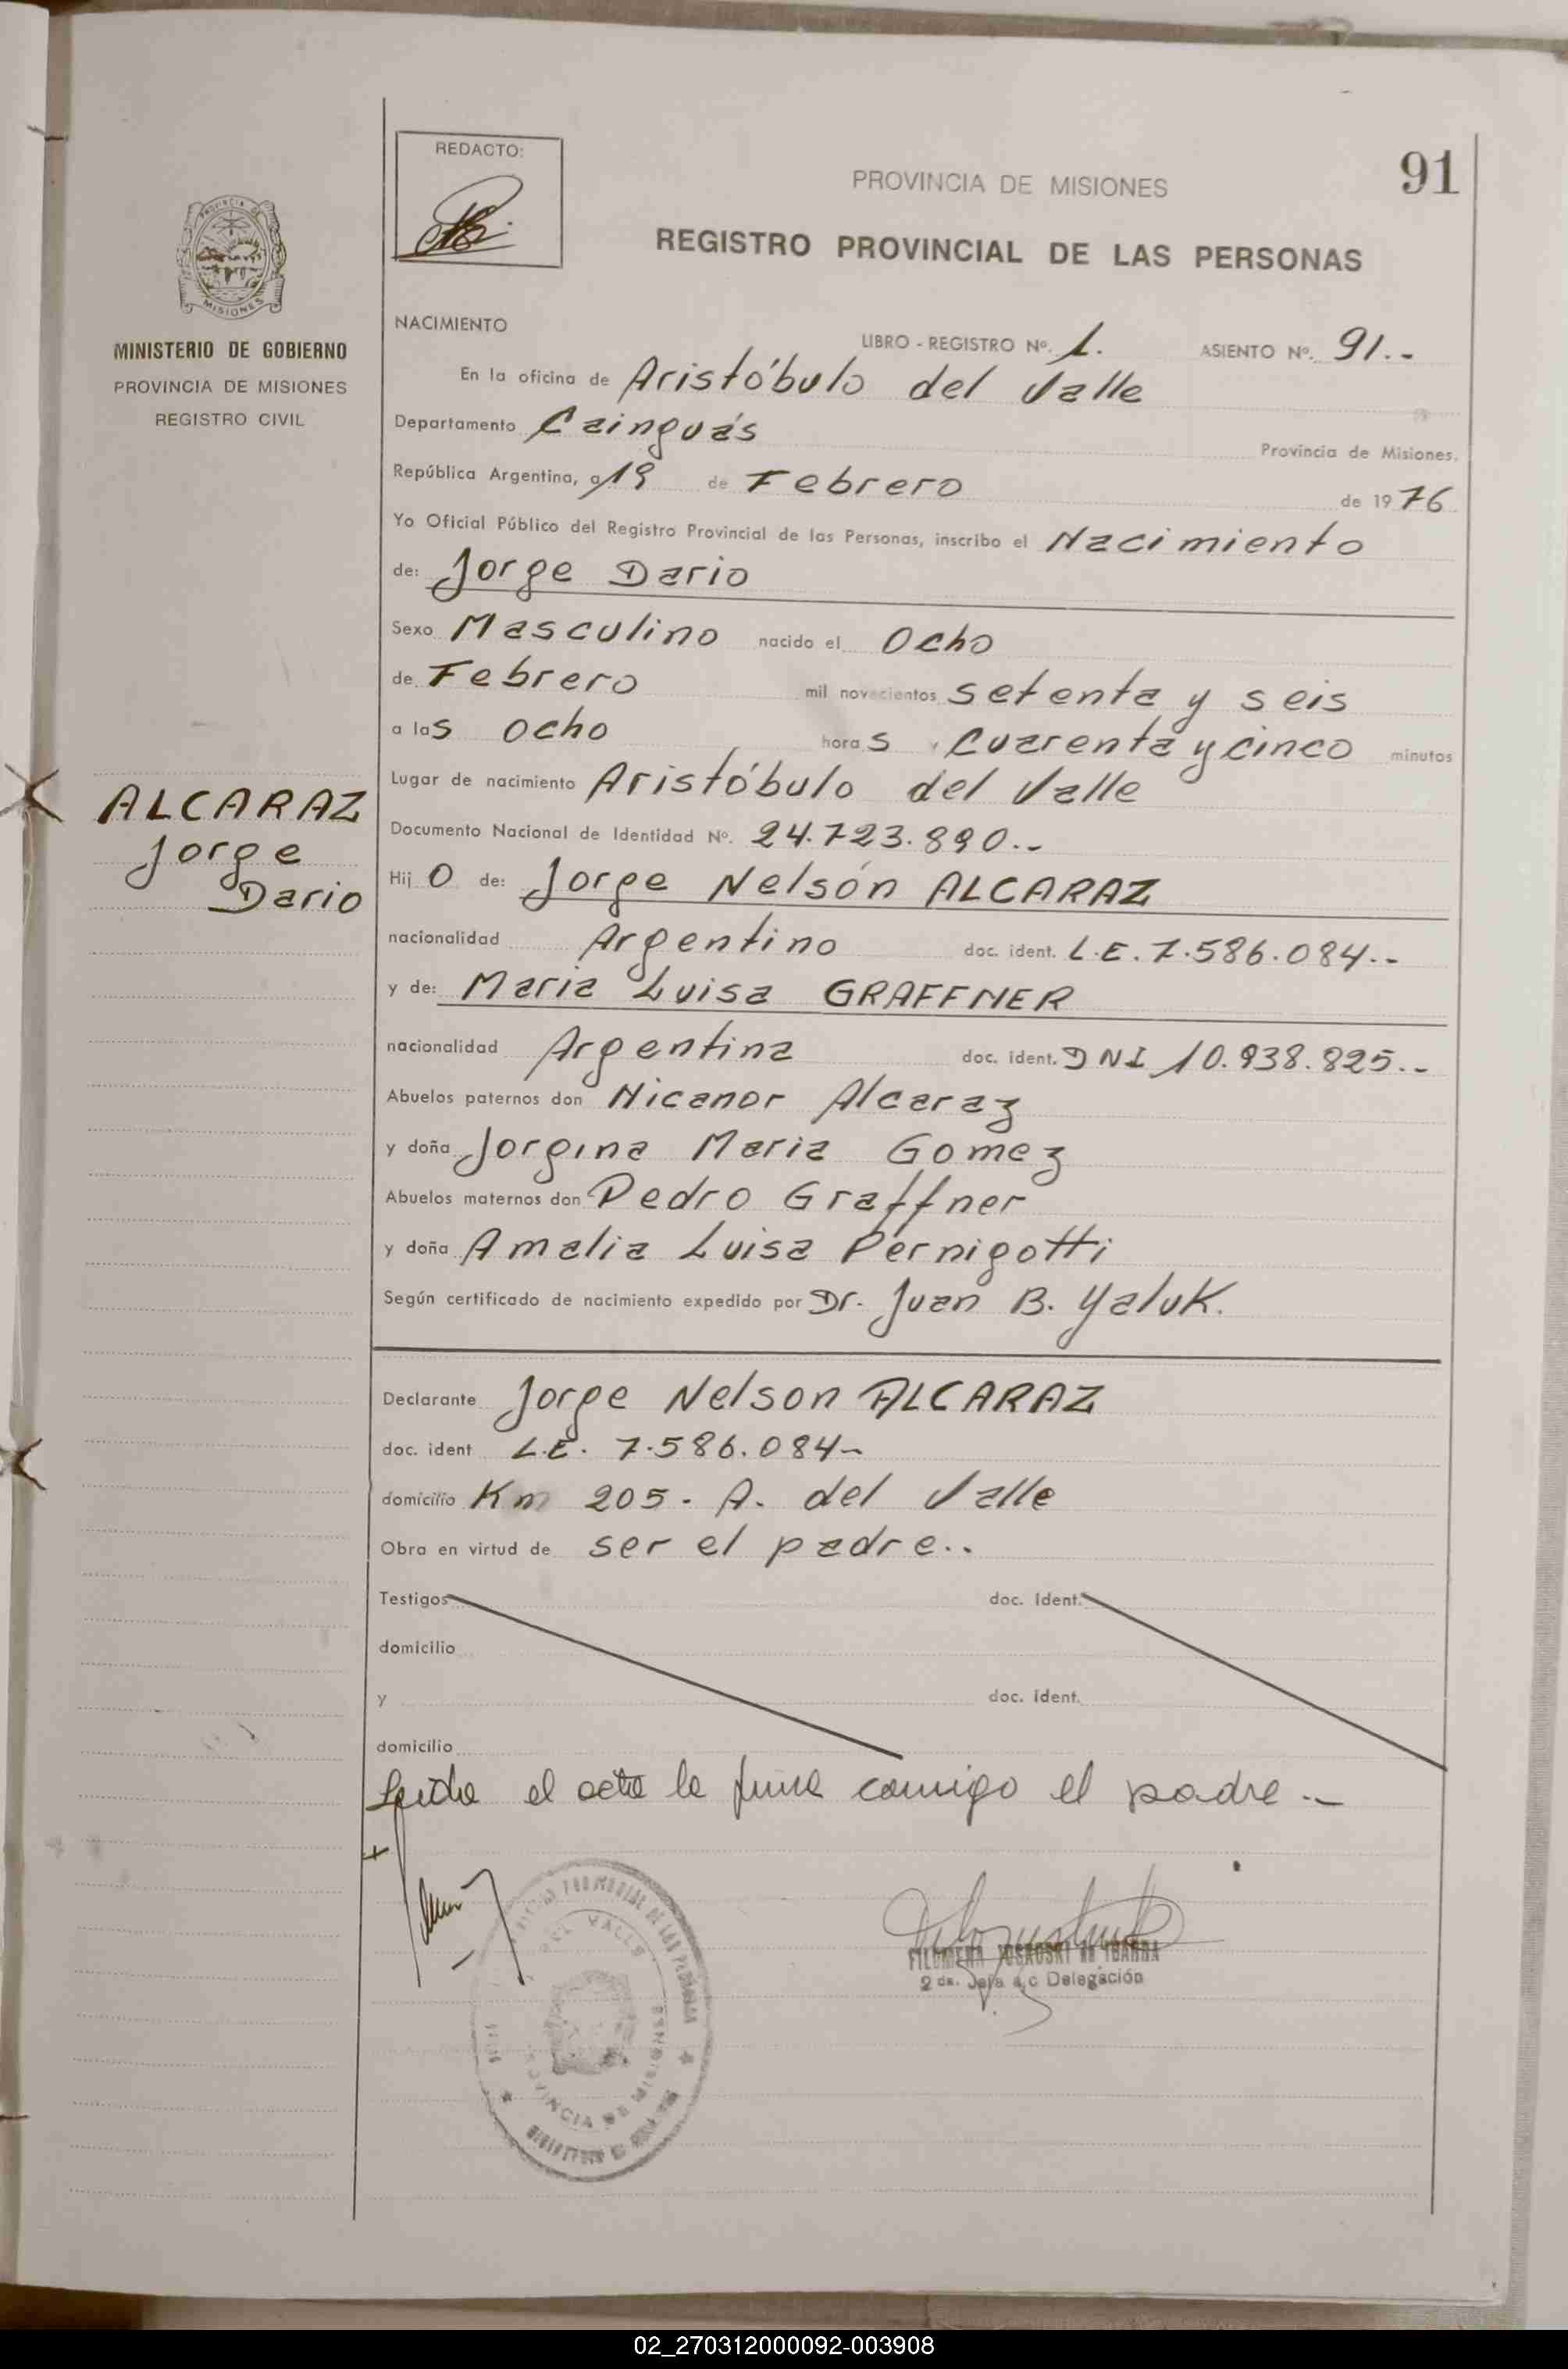 REDACTO:
PROVINCIA DE MISIONES
91
REGISTRO PROVINCIAL DE LAS PERSONAS
PROVINCIA DE
MISIONES
MINISTERIO DE GOBIERNO
PROVINCIA DE MISIONES
REGISTRO CIVIL
NACIMIENTO
LIBRO - REGISTRO Nº. 1. ASIENTO Nº. 91.-
En la oficina de Aristóbulo del Valle
Departamento Cainguás Provincia de Misiones.
República Argentina, a 19 de Febrero de 1976
Yo Oficial Público del Registro Provincial de las Personas, inscribo el Nacimiento
de: Jorge Dario
Sexo Masculino nacido el Ocho
de Febrero mil novecientos setenta y seis
a las ocho horas cuarenta y cinco minutos
Lugar de nacimiento Aristóbulo del Valle
ALCARAZ
Jorge
Dario
Documento Nacional de Identidad Nº. 24.723.890.-
Hijo de: Jorge Nelsón ALCARAZ
nacionalidad Argentino doc. ident. L.E. 7.586.084.-
y de: Maria Luisa GRAFFNER
nacionalidad Argentina doc. ident. DNI 10.938.825.-
Abuelos paternos don Nicanor Alcaraz
y doña Jorgina Maria Gomez
Abuelos maternos don Pedro Graffner
y doña Amalia Luisa Pernigotti
Según certificado de nacimiento expedido por Dr. Juan B. Yaluk.
Declarante Jorge Nelson ALCARAZ
doc. ident L.E. 7.586.084-
domicilio Km 205. A. del Valle
Obra en virtud de ser el padre..
Testigos doc. ident.
domicilio
y doc. ident.
domicilio
Leida el acta la firma conmigo el padre.-
DEL VALLE
PROVINCIA DE MISIONES
FILOMENA DE YBARRA
2 da. Jefa a/c Delegación
02_270312000092-003908